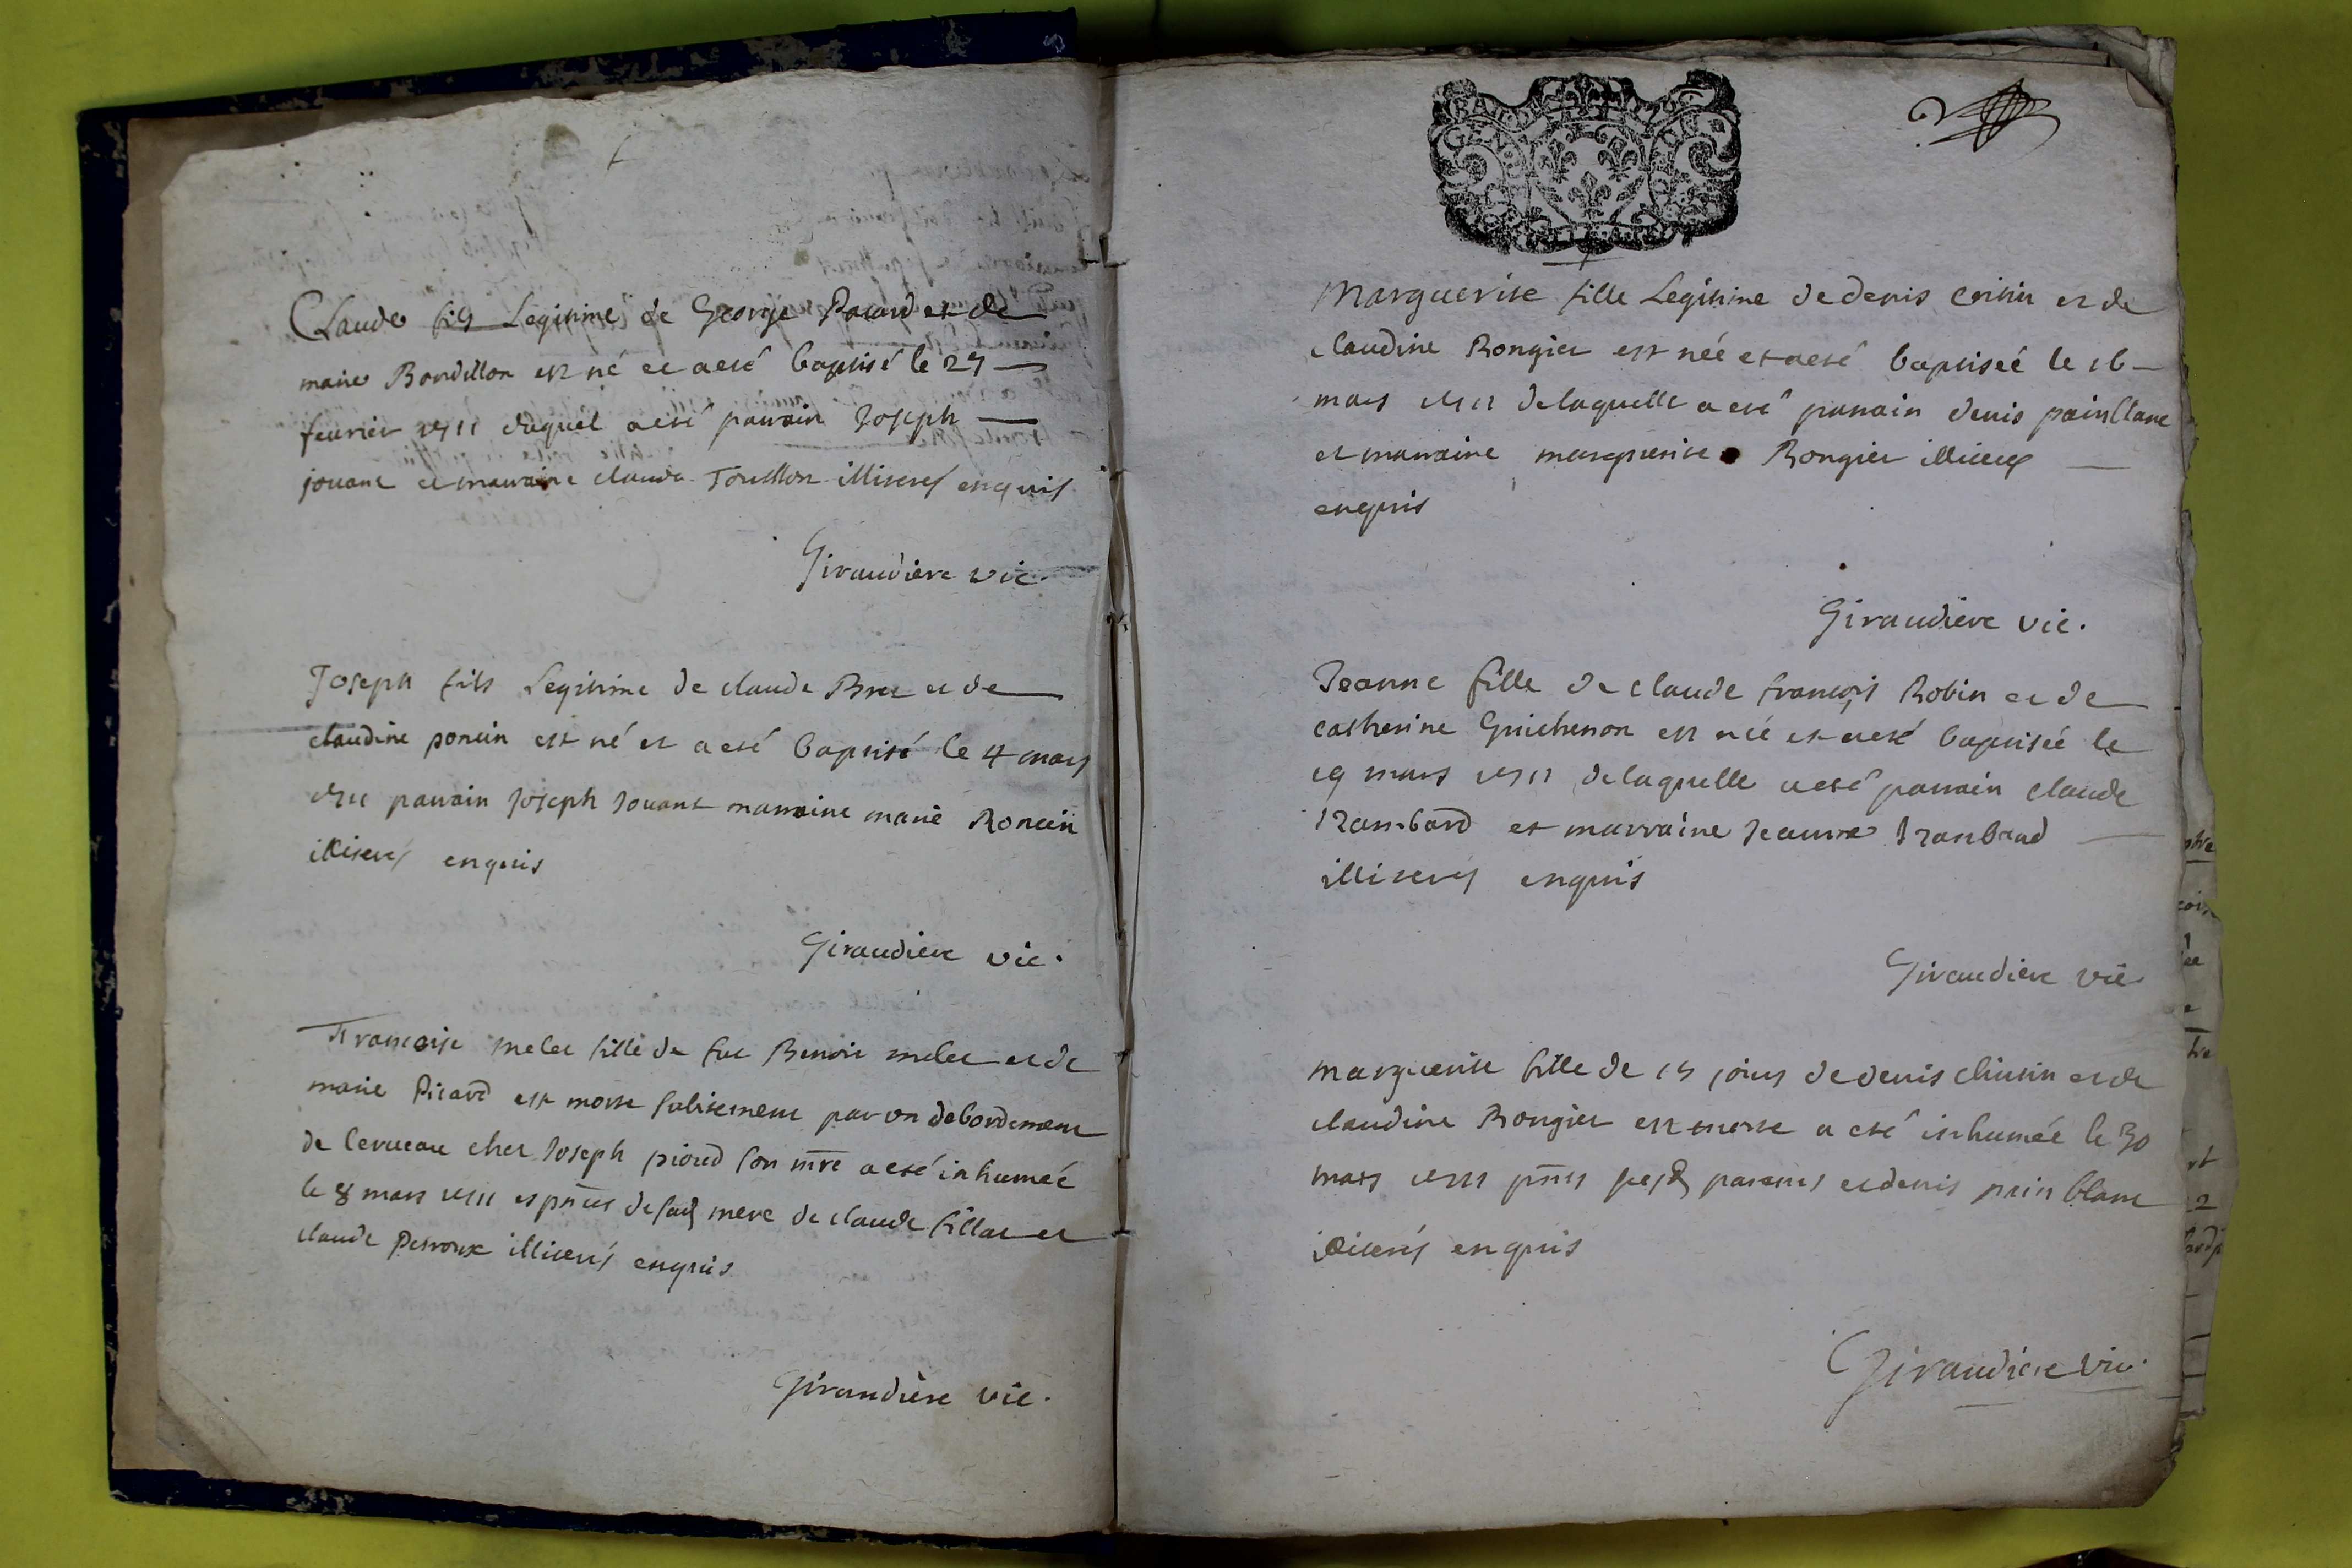 Claude fils Legitime de George Pacard et de
marie Bondillon est né et a eté baptisé le 27
feurier 1711 duquel a eté parrain Joseph
jouant et marraine claude illiterés enquis
Giraudiere vic.
Joseph fils Legitime de claude Bret et de
claudine poncin est né et a eté baptisé le 4 mars
1711 parrain Joseph Jouant marraine marie Roncin
illiterés enquis
Giraudiere vic.
Francoise melet fille de feu Benoit melet et de
marie Picard est morte subitement par un debordement
de cerueau cher Joseph pioud son mre a eté inhumeé
le 8 mars 1711 es pntes de sad mere de claude fillat et
claude Perroux illiterés enquis
Giraudiere vic.
Marguerite fille Legitime de denis et de
claudine Rongier est néé et a eté baptiseé le 16
mars 1711 de laquelle a eté parrain denis painblanc
et marraine marguerite Rongier illiterés
enquis
Giraudiere vic.
Jeanne fille de claude francois Robin et de
catherine Guichenon est néé et a eté baptiseé le
19 mars 1711 de laquelle a eté parrain claude
et marraine Jeanne
illiterés enquis
Giraudiere vic
marguerite fille de 15 jours de denis et de
claudine Rongier est morte a eté inhumeé le 30
mars 1711 pnts parents et denis pain blanc
illiterés enquis
Giraudiere vic.